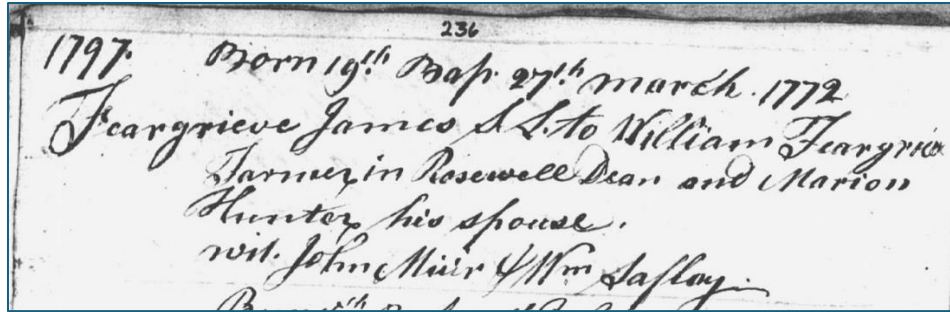 236
1797. Born 19th Bap. 27th March. 1772
Feargrieve James S. L. to William Feargrieve
Farmer in Rosewell Dean and Marion
Hunter his spouse.
wit. John Muir & Wm Laflay.